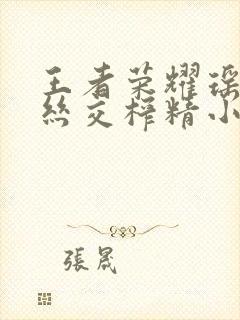 王者荣耀瑶
丝交榨精小
張晟